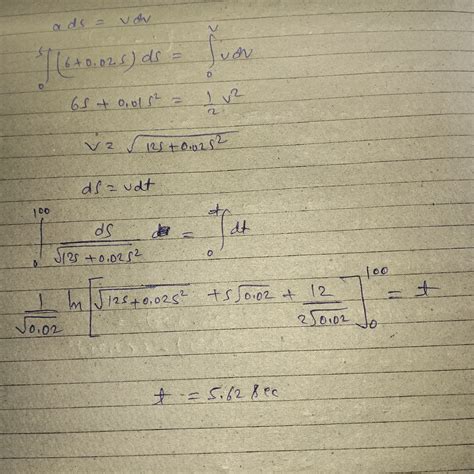 a ds = v dv
∫₀ˢ (6+0.02s) ds = ∫₀ᵛ v dv
6s + 0.01s² = 1/2 v²
v = √(12s+0.02s²)
ds = v dt
∫₀¹⁰⁰ ds/√(12s+0.02s²) = ∫₀ᵗ dt
1/√0.02 ln[√(12s+0.02s²) + s√0.02 + 12/(2√0.02)]₀¹⁰⁰ = t
t = 5.62 sec